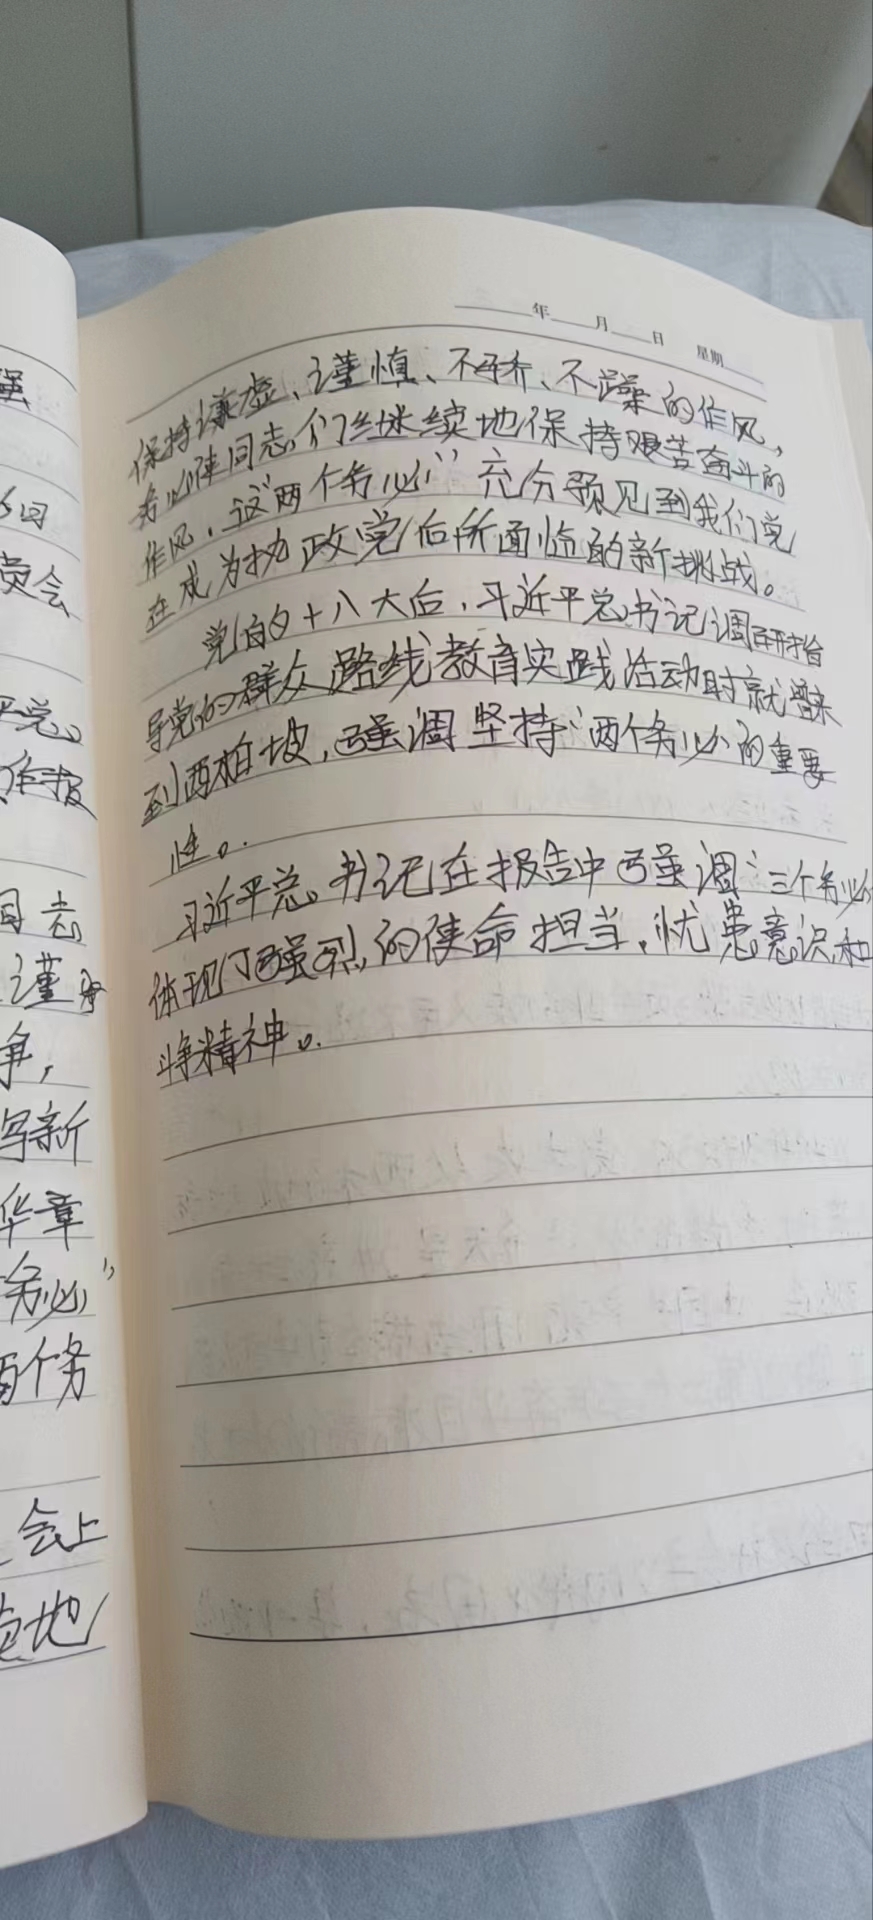 强
员会
作报
同志
谨
争，
写新
华章
务必”
两个务
会上
地
年 月 日 星期
保持谦虚、谨慎、不骄、不躁的作风，
务必使同志们继续地保持艰苦奋斗的
作风，这“两个务必”充分预见到我们党
在成为执政党后所面临的新挑战。
党的十八大后，习近平总书记调研指
导党的群众路线教育实践活动时就曾来
到西柏坡，强调坚持“两个务必”的重要
性。
习近平总书记在报告中强调“三个务必
体现了强烈的使命担当，忧患意识和
斗争精神。